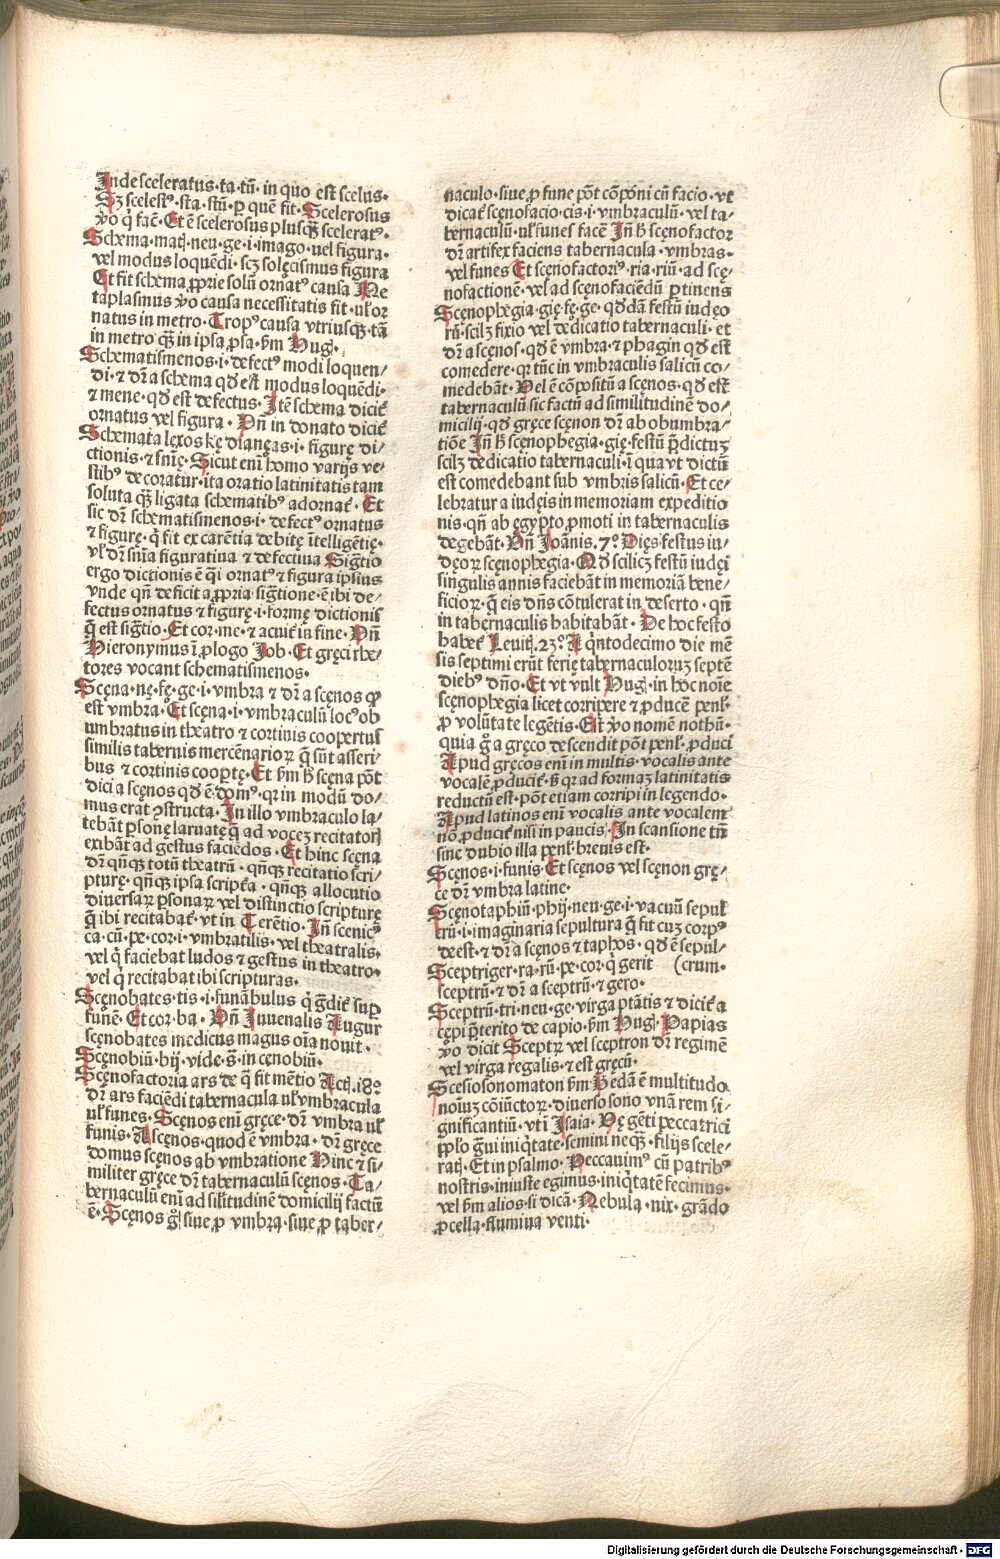 Inde sceleratus·ta·tū· in quo est scelus·
Sꝫ scelestꝰ·sta·stū· ꝑ quē fit· Scelerosus
ꝟo q̇ fac̄· Et ē scelerosus plusqȝ̄ sceleratꝰ·
Schema·matꝭ·neu·ge·i·imago·uel figura·
vel modus loquēdi·scꝫ solęcismus figura
Et fit schema ꝓprie solū ornatꝰ causa Me
taplasmus ꝟo causa necessitatis fit·uł or
natus in metro·Tropꝰ causa vtriusqꝫ·tā
in metro qȝ̄ in ipsa ꝓsa·ẜm Hug̨·
Schematismenos·i·defectꝰ modi loquen/
di·⁊ dr̄ a schema qd̓ est modus loquēdi·
⁊ mene·qd̓ est defectus· Itē schema dicit̄
ornatus vel figura· Vn̄ in donato dicit̄
Schemata lexos kę dianęas·i·figurę di/
ctionis·⁊ sn̄ię·Sicut eni homo varijs ve/
stibꝰ decoratur·ita oratio latinitatis tam
soluta qȝ̄ ligata schematibꝰ adornat̄· Et
sic dr̄ schematismenos·i·defectꝰ ornatus
⁊ figurę·q̄ fit ex carētia debitę ītelligētię·
vł dr̄ sn̄ia figuratiua ⁊ defectiua Sigt̄io
ergo dictionis ē q̄i ornatꝰ ⁊ figura ipsius
vnde qn̄ deficit a ꝓpria sigt̄ione·ē ibi de/
fectus ornatus ⁊ figurę·i·formę dictionis
q̄ est sigt̄io·Et cor·me·⁊ acuit̄ in fine·Vn̄
Hieronymus ī ꝓlogo Iob·Et gręci rhe/
tores vocant schematismenos·
Scęna·nę·fę·ge·i·vmbra ⁊ dr̄ a scęnos qd̓
est vmbra·Et scęna·i·vmbraculū locꝰ ob
umbratus in theatro ⁊ cortinis coopertus
similis tabernis mercēnarioꝝ q̄ sūt asseri/
bus ⁊ cortinis cooptę·Et ẜm h̄ scęna pōt
dici a scęnos qd̓ ē domꝰ·qr in modū do/
mus erat ꝯstructa·In illo vmbraculo la/
tebāt ꝑsonę laruatę q̄ ad voceꝫ recitatorꝭ
exibāt ad gestus faciēdos·Et hinc scęna
dr̄ qn̄qꝫ totū theatrū·qn̄qꝫ recitatio scri/
pturę·qn̄qꝫ ipsa scripta·qn̄qꝫ allocutio
diuersaꝝ ꝑsonaꝝ vel distinctio scripturę
q̄ ibi recitabat̄·vt in Terētio·In̄ scenicꝰ
ca·cū·pe·cor·i·vmbratilis·vel theatralis·
vel q̇ faciebat ludos ⁊ gestus in theatro·
vel q̇ recitabat ibi scripturas·
Scęnobates·tis·i·funābulus q̇ g̃dit̄ suꝑ
funē·Et cor·ba·Vn̄ Iuuenalis Augur
scęnobates medicus magus oīa nouit·
Scęnobiū·bij·vide·s̄·in cenobiū·
Scęnofactoria ars de q̄ fit mētio Actꝭ·18º
dr̄ ars faciēdi tabernacula uł vmbracula
uł funes·Scęnos eni gręce·dr̄ vmbra uł
funis·A scęnos·quod ē vmbra·dr̄ gręce
domus scęnos ab vmbratione Hinc ⁊ si/
militer gręce dr̄ tabernaculū scęnos·Ta/
bernaculū enī ad silitudinē domicilij factū
ē·Scęnos g̊·siue ꝓ vmbra·siue ꝓ taber/
naculo·siue ꝓ fune pōt cōponi cū facio·vt
dicat̄ scęnofacio·cis·i·vmbraculū·vel ta/
bernaculū·uł funes facē In̄ h̄ scęnofactor
dr̄ artifex faciens tabernacula·vmbras·
vel funes Et scęnofactoriꝰ·ria·riū·ad scę/
nofactionē·vel ad scęnofaciēdū ꝑtinens
Scęnophęgia·gię·fę·ge·qd̓dā festū iudęo
rū·scilꝫ fixio vel dedicatio tabernaculi·et
dr̄ a scęnos·qd̓ ē vmbra·⁊ phagin qd̓ est
comedere·qr tūc in vmbraculis salicū co/
medebāt·Vel ē cōpositū a scęnos·qd̓ est
tabernaculū sic factū ad similitudinē do/
micilij·qd̓ gręce scęnon dr̄ ab obumbra/
tiōe In̄ h̄ scęnophegia·gię·festū p̄dictuꝫ
scilꝫ dedicatio tabernaculi·ī qua vt dictū
est comedebant sub vmbris salicū·Et ce/
lebratur a iudęis in memoriam expeditio
nis·qn̄ ab ęgypto ꝓmoti in tabernaculis
degebāt·Vn̄ Ioānis·7º Dięs festus iu/
dęoꝝ scęnophegia·Qd̓ scilicꝫ festū iudęi
singulis annis faciebāt in memoriā bene/
ficioꝝ·q̄ eis dn̄s cōtulerat in deserto·qn̄
in tabernaculis habitabāt·De hoc festo
habet̄ Leuitꝭ·23º A q̇ntodecimo die mē
sis septimi erūt ferię tabernaculoruꝫ septē
diebꝰ dn̄o·Et vt vult Hug̨·in hoc noīe
scęnophegia licet corripere ⁊ ꝓducē penł·
ꝓ volūtate legētis·Est ꝟo nomē nothū·
quia g̊ a gręco descendit pōt penł·ꝓduci
Apud gręcos eni in multis·vocalis ante
vocalē ꝓducit̄·s̄ qr ad formaꝫ latinitatis
reductū est·pōt etiam corripi in legendo·
Apud latinos eni vocalis ante vocalem
nō ꝓducit̄ nisi in paucis·In scansione tn̄
sine dubio illa penł·breuis est·
Scęnos·i·funis·Et scęnos vel scęnon grę/
ce dr̄ vmbra latine·
Scęnotaphiū·phij·neu·ge·i·vacuū sepul
crū·i·imaginaria sepultura q̄ fit cuꝫ corpꝰ
deest·⁊ dr̄ a scęnos ⁊ taphos·qd̓ ē sepul/
Sceptriger·ra·rū·pe·cor·q̇ gerit (crum·
sceptrū·⁊ dr̄ a sceptrū·⁊ gero·
Sceptrū·tri·neu·ge·virga ptātis ⁊ dicit̄ a
cępi p̄terito de capio·ẜm Hug̨·Papias
ꝟo dicit Sceptꝝ vel sceptron dr̄ regimē
vel virga regalis·⁊ est gręcū·
Scesiosonomaton ẜm Bedā ē multitudo
noīuꝫ cōiūctoꝝ·diuerso sono vnā rem si/
gnificantiū·vt i Isaia·Vę gēti peccatrici
pplo g̃ui iniq̇tate·semini neqȝ̄·filijs scele/
ratꝭ·Et in psalmo·Peccauimꝰ cū patribꝰ
nostris·iniuste egimus·iniq̇tatē fecimus·
vel ẜm alios·si dicā·Nebula·nix·grādo
ꝓcella·flumina venti·
Digitalisierung gefördert durch die Deutsche Forschungsgemeinschaft · DFG